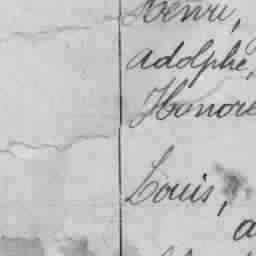 Henri,
Adolphe,
Honoré
Louis,